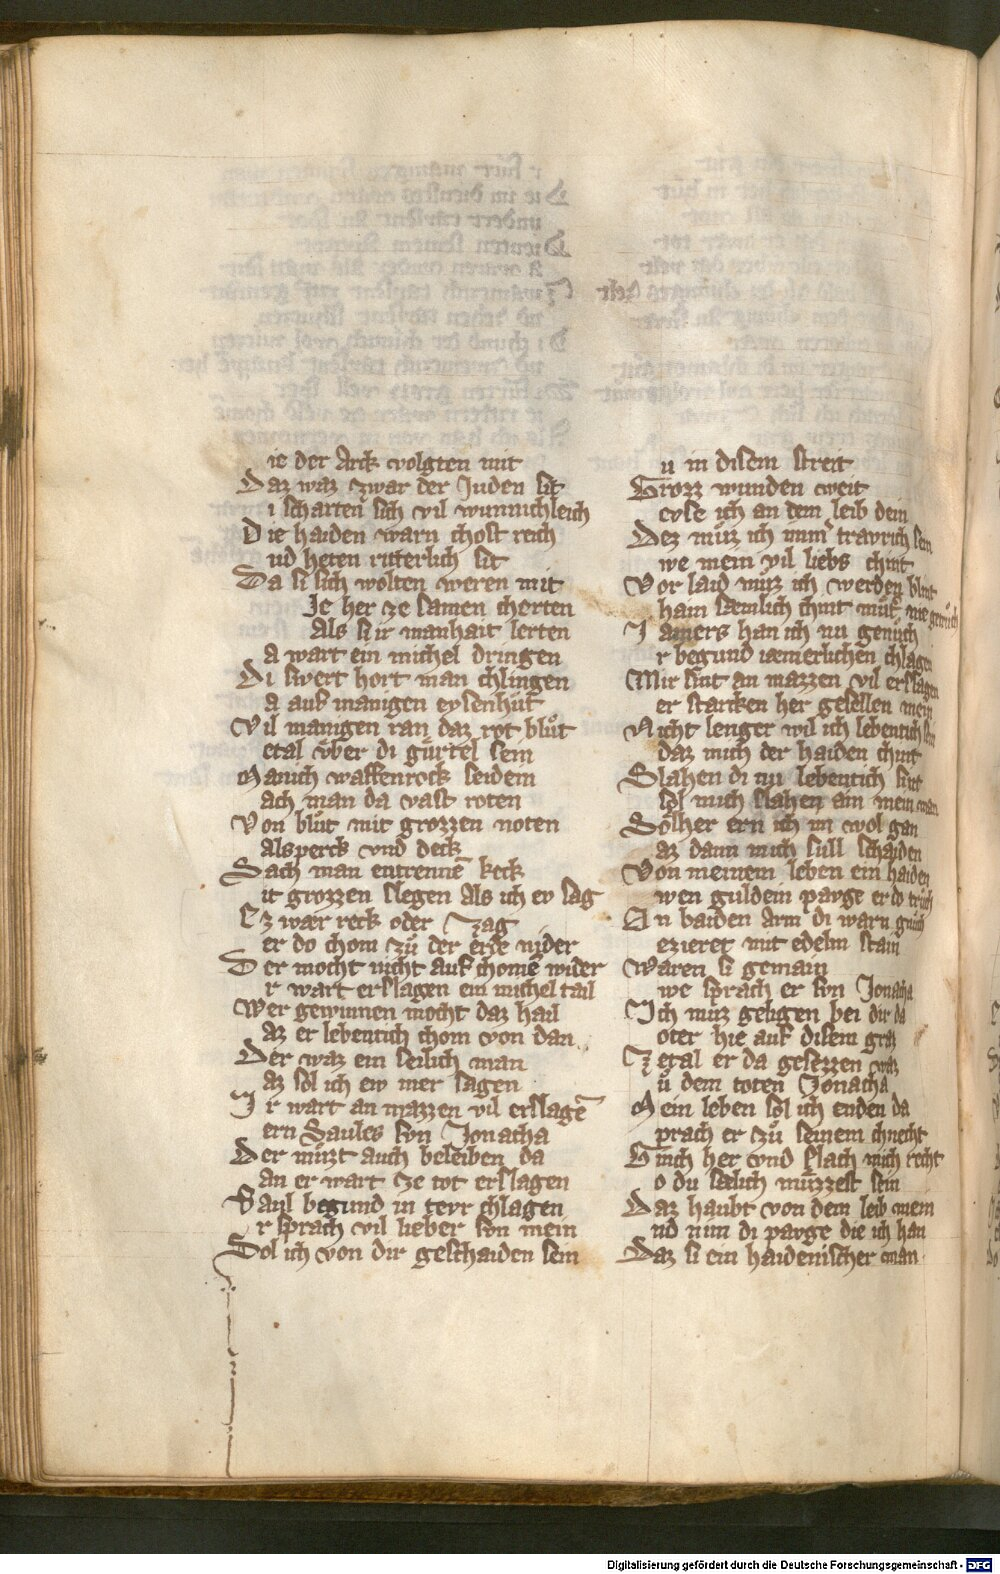 ie der Arck volgten mit
Daz waz zwar der Juden sit
i scharten sich vil wunnichleich
Die haiden warn chost reich
nd heten ritterlich sit
Da si sich wolten weren mit
Je her ze samen cherten
Als si ir manhait lerten
a wart ein michel dringen
Di swert hort man chlingen
a auf manigen eysenhůt
Vil manigen ran daz rot blůt
etal vͤber di gürtel sein
Manich waffenrock seidein
ach man da vast roten
Von blůt mit grozzen noten
alsperck vnd deck
Sach man entrennē keck
it grozzen slegen als ich ev sag
Ez wær reck oder zag
er do chom zů der erde nider
Der mocht nicht auf chomē wider
r wart erslagen ein michel tail
Wer gewinnen mocht daz hail
az er lebentich chom von dan
Der waz ein selich man
az sol ich ew mer sagen
Ir wart an mazzen vil erslagē
ern Saules svn Jonacha
Der můzt auch beleiben da
an er wart ze tot erslagen
Saul begund in tevr chlagen
r sprach vil lieber svn mein
Sol ich von dir geschaiden sein
u in disem streit
Grozz wunden weit
eyse ich an dem leib dein
Dez můz ich imm̄ travrich sein
we mein vil liebs chint
Vor laid můz ich werden blint
ham sæmlich chint můt nie
Jamers han ich nu genůch
r begund iæmerlichen chlagen
Mir sint an mazzen vil erslagen
er starken her gesellen mein
Nicht lenger wil ich lebentich sein
daz mich der haiden chint
Slahen di nu lebentich sint
sol mich slahen ain mein man
Sölher ern ich im wol gan
az dann mich süll schaiden
Von meinem leben ein haiden
wen guldein pavge er do trůch
An baiden arm di warn gnůch
ezieret mit edelm stain
Waren si gemain
we sprach er svn Jonacha
Ich můz geligen bei dir da
oter hie auf disem graz
Zetal er da gesezzen waz
ů dem toten Jonacha
Mein leben sol ich enden da
prach er zů seinem chnecht
Ginch her vnd slach mich recht
o du sælich müzzest sein
Daz haubt von dem leib mein
nd nim di pavge die ich han
Daz si ein haidenischer man
Digitalisierung gefördert durch die Deutsche Forschungsgemeinschaft - DFG